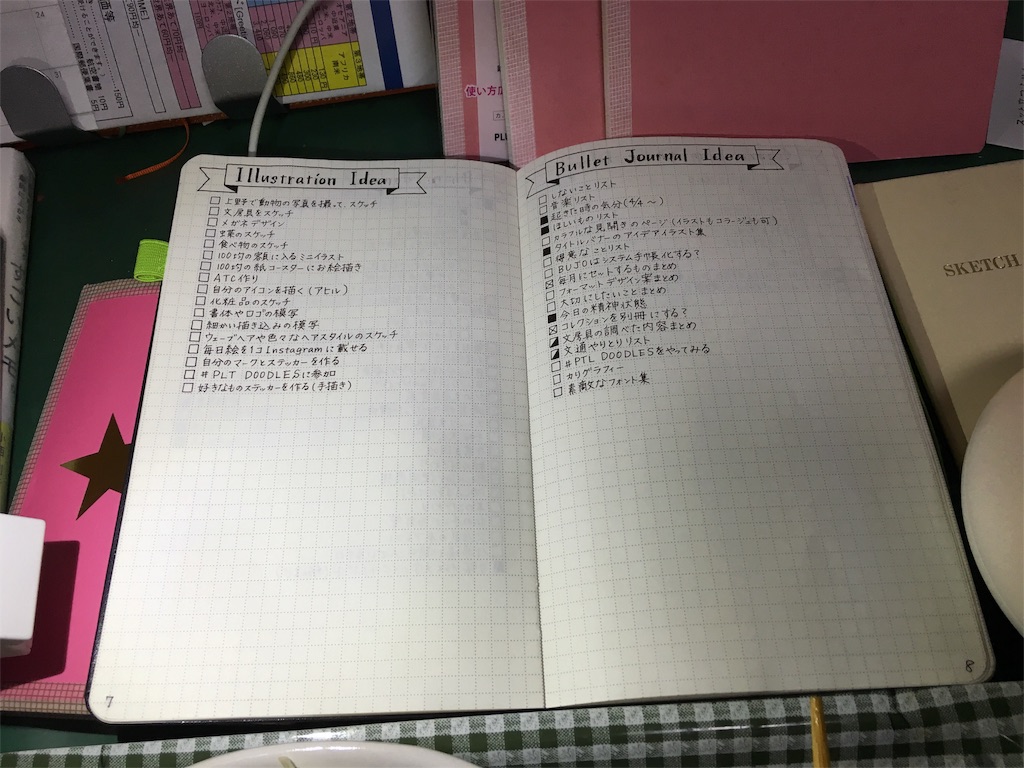 Illustration Idea
□ 上野で動物の写真を撮って、スケッチ
□ 文房具をスケッチ
□ メガネデザイン
□ 虫葉のスケッチ
□ 食べ物のスケッチ
□ 100均の額に入るミニイラスト
□ 100均の紙コースターにお絵描き
□ ATC作り
□ 自分のアイコンを描く(アヒル)
□ 化粧品のスケッチ
□ 書体やロゴの模写
□ 細かい描き込みの模写
□ ウェーブヘアや色々なヘアスタイルのスケッチ
□ 毎日絵を1コInstagramに載せる
□ 自分のマークとステッカーを作る
□ #PLT DOODLESに参加
□ 好きなものステッカーを作る(手描き)
7
Bullet Journal Idea
□ しないことリスト
□ 音楽リスト
■ 起きた時の気分(4/4〜)
■ ほしいものリスト
□ カラフルな見開きのページ(イラストもコラージュも可)
■ タイトルバナーのアイデアイラスト集
□ 優先なことリスト
□ BUJOはシステム手帳化する?
☒ 毎月にセットするものまとめ
□ フォーマットデザイン案まとめ
□ 大切にしたいことまとめ
■ 今日の精神状態
☒ コレクションを別冊にする?
文房具の調べた内容まとめ
文通やりとりリスト
□ #PTL DOODLESをやってみる
□ カリグラフィー
□ 素敵なフォント集
8
SKETCH
使い方広
PLU
アフリカ
南米
24
31
国際郵便葉書